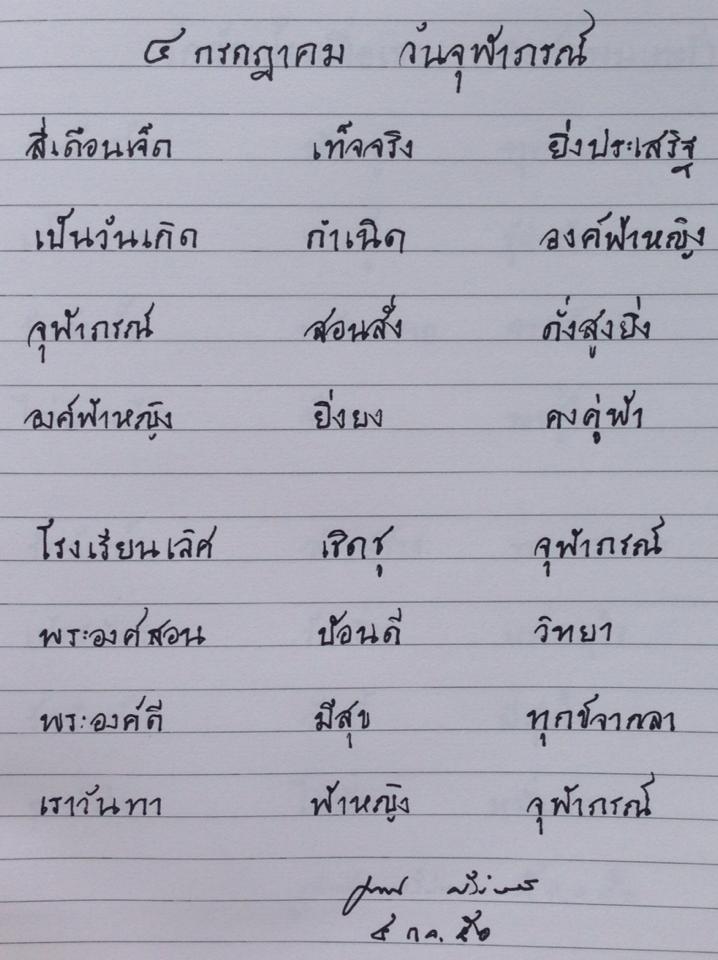 ๔ กรกฎาคม วันจุฬาภรณ์
สี่เดือนเจ็ด เท็จจริง ยิ่งประเสริฐ
เป็นวันเกิด กำเนิด องค์ฟ้าหญิง
จุฬาภรณ์ สอนสั่ง ดั่งสูงยิ่ง
องค์ฟ้าหญิง ยิ่งยง คงคู่ฟ้า
โรงเรียนเลิศ เชิดชู จุฬาภรณ์
พระองค์สอน ป้อนดี วิทยา
พระองค์ดี มีสุข ทุกข์จากลา
เราวันทา ฟ้าหญิง จุฬาภรณ์
๔ ก.ค.